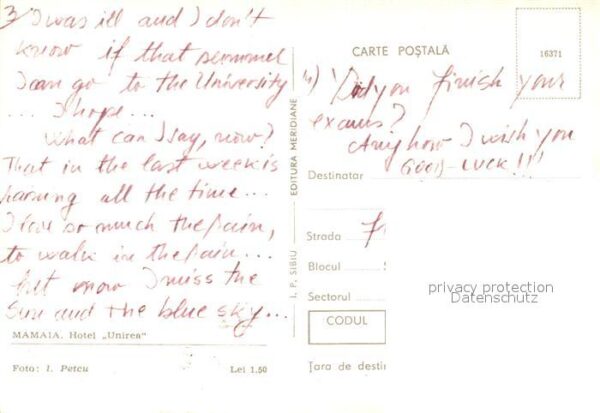 3) I was ill and I don't
know if that sommer
I can go to the University
... I hope...
What can I say, now?
That in the last week is
raining all the time...
I love so much the rain,
to walk in the rain...
but now I miss the
Sun and the blue sky...
MAMAIA. Hotel „Unirea"
Foto: I. Petcu
Lei 1.50
I. P. SIBIU
EDITURA MERIDIANE
CARTE POȘTALĂ
16371
4) Did you finish your
exams?
Anyhow I wish you
GOOD-LUCK!!!
Destinatar
Strada
Blocul
Sectorul
CODUL
Țara de desti
privacy protection
Datenschutz